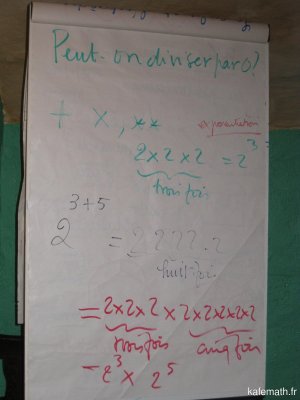 Peut-on diviser par 0?
+ x, ** exponentiation
2x2x2 = 2³ =
trois fois
2³⁺⁵ = 2222.2
huit fois
= 2x2x2 x 2x2x2x2x2
trois fois cinq fois
= 2³ x 2⁵
kafemath.fr